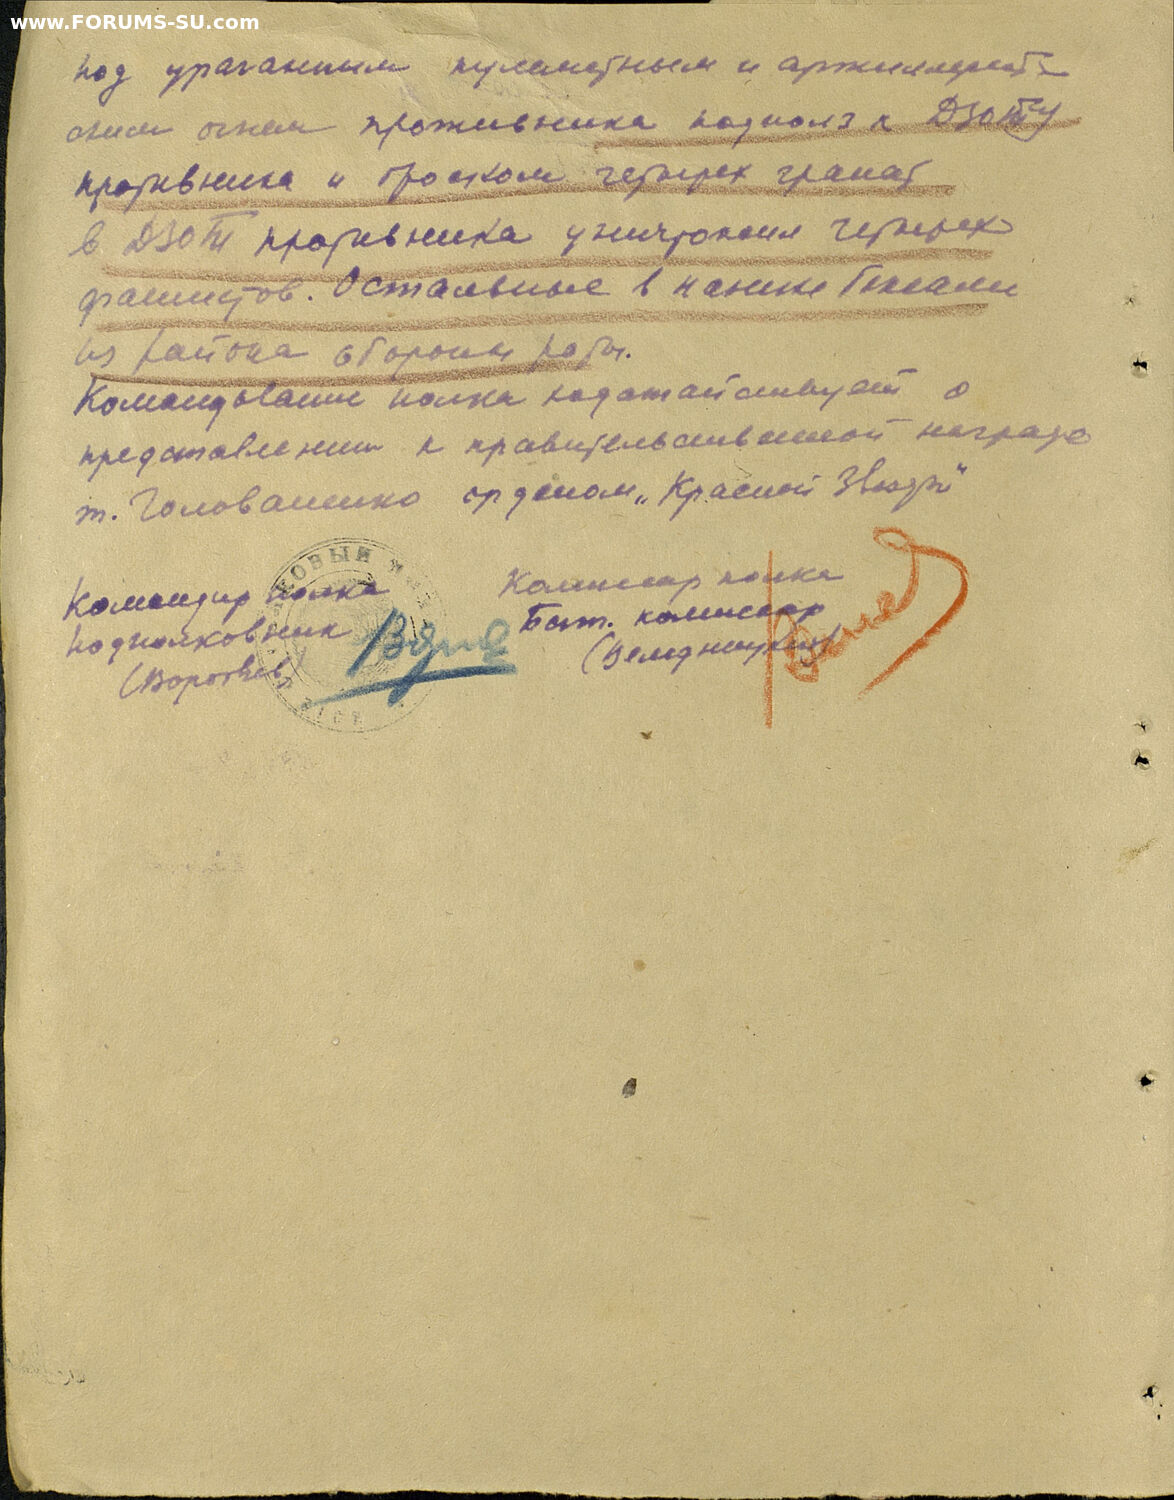 www.FORUMS-SU.com
под ураганным пулеметным и артиллерий-
ским огнем противника подполз к ДЗОТу
противника и броском четырех гранат
в ДЗОТ противника уничтожил четырех
фашистов. Остальные в панике бежали
из района обороны роты.
Командование полка ходатайствует о
представлении к правительственной награде
т. Головащенко орденом „Красной Звезды"
Командир полка
подполковник
(Воротьев)
Комиссар полка
Бат. комиссар